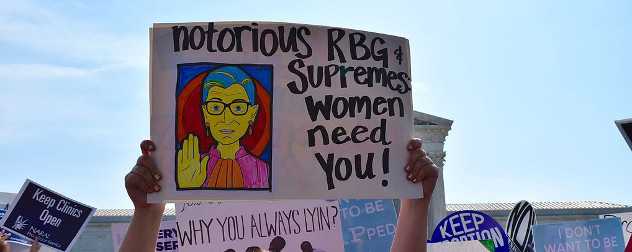 notorious RBG &
Supremes:
women
need
You!
Keep Clinics
Open
NARAL
WHY YOU ALWAYS LYIN?
TO BE
KEEP
ABORTION
I DON'T
WANT TO BE